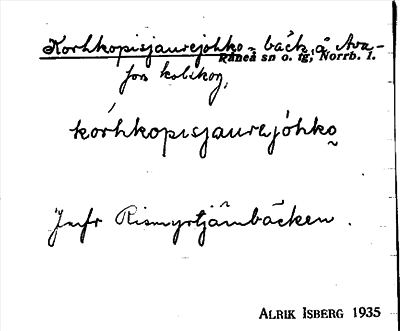 Korhkopisjaurejohko - bäck å Ava-
Råneå sn o. tg, Norrb. l.
fors
kórhkopisjaurejóhko
Jmfr Rismyrtjärnbäcken.
ALRIK ISBERG 1935